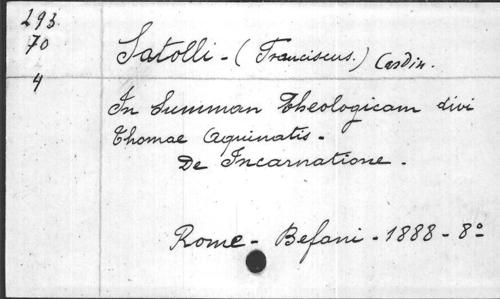 293.
70
4
Satolli - (Franciscus.) Cardin.
In Summan Theologicam divi
Thomae Aquinatis -
De Incarnatione.
Rome - Befani - 1888 - 8º